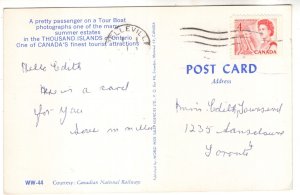 A pretty passenger on a Tour Boat
photographs one of the many
summer estates
in the THOUSAND ISLANDS of Ontario
One of CANADA'S finest tourist attractions
BELLEVILLE
CANADA
Hello Edith
Here is a card
for you
Love
POST CARD
Address
Miss Edith Townsend
1235
Toronto
WW-44 Courtesy: Canadian National Railways